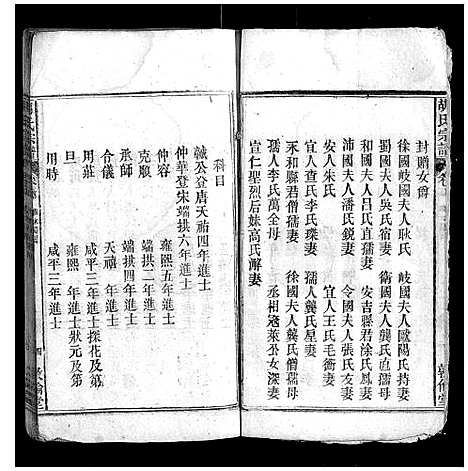 胡氏宗譜
封贈女爵
徐國岐國夫人耿氏 岐國夫人歐陽氏持妻
蜀國夫人吳氏宿妻 衛國夫人龔氏直孺母
燕國夫人呂氏直孺妻 安吉縣君涂氏鳳妻
沛國夫人潘氏銳妻 令國夫人張氏友妻
安人朱氏 宜人王氏毛衝妻
宜人查氏李氏璞妻 孺人龔氏星妻
永和縣君僧孺妻 徐國夫人龔氏僧孺母
孺人李氏萬全母 丞相寇萊公女深妻
宣仁聖烈后妹高氏妻
科目
誠公登唐天祐四年進士
仲華登宋端拱六年進士
仲容 雍熙五年進士
克順 端拱二年進士
承師 端拱四年進士
合儀 天禧 年進士
用莊 咸平三年進士探花及第
旦 雍熙 年進士狀元及第
用時 咸平三年進士
四
敦倫堂